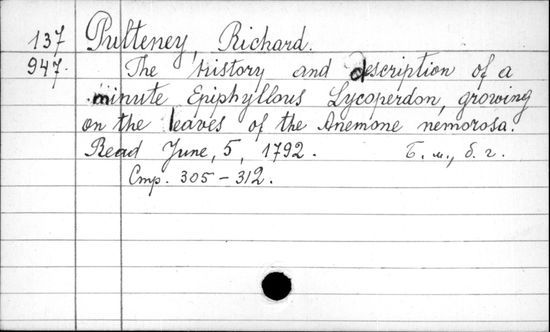 137 Pulteney, Richard.
947. The history and description of a
minute Epiphyllous Lycoperdon, growing
on the leaves of the Anemone nemorosa.
Read June, 5, 1792. Б. м., б. г.
Стр. 305-312.